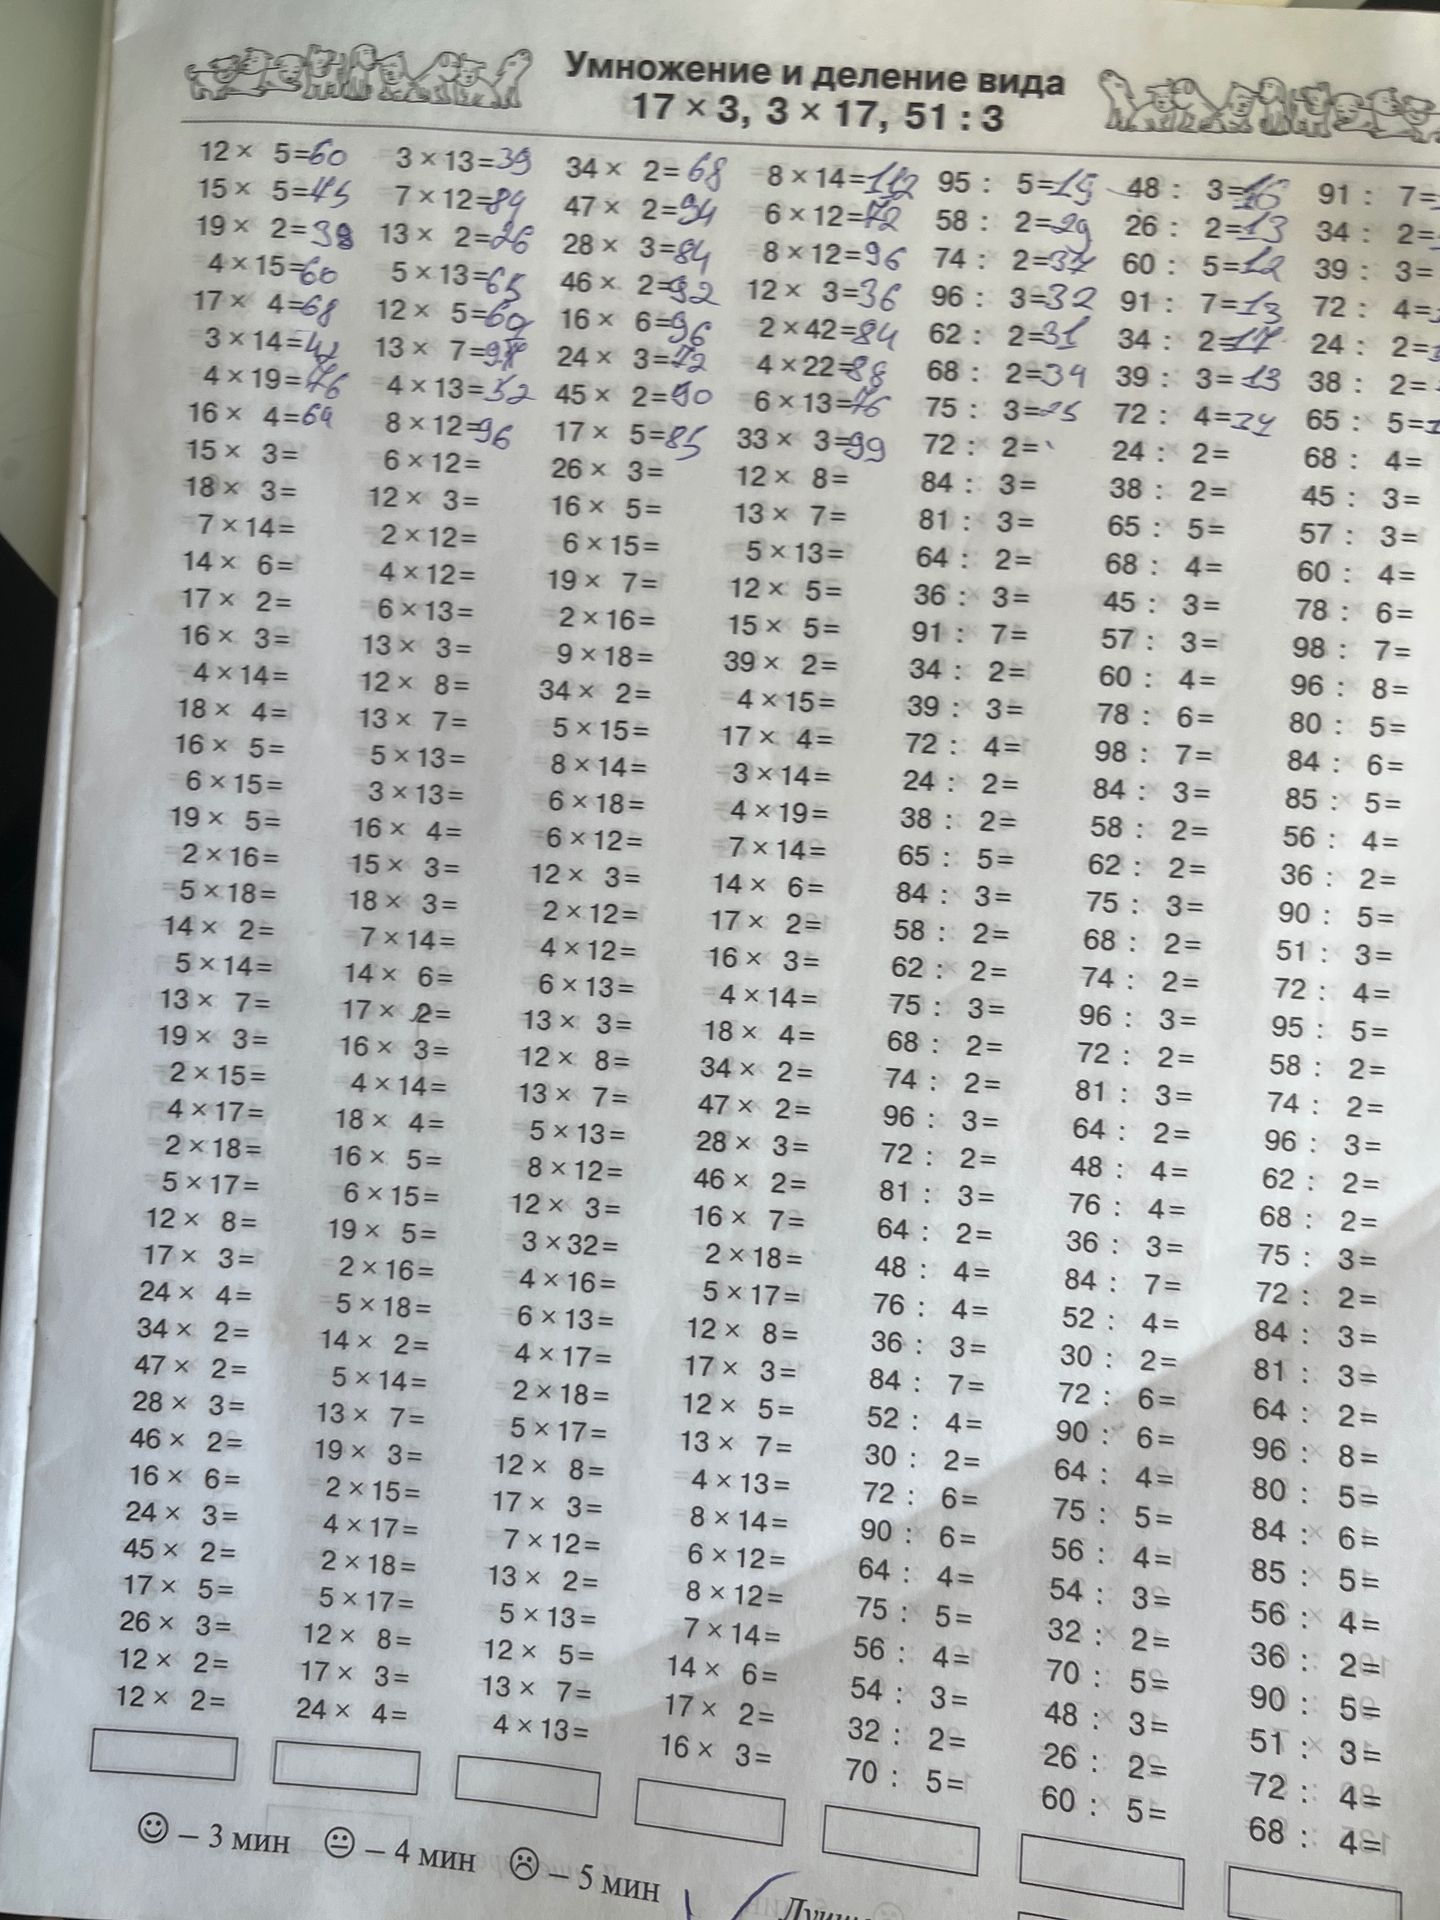 Умножение и деление вида
17 × 3, 3 × 17, 51 : 3
12 × 5=60
15 × 5=45
19 × 2=38
4 × 15=60
17 × 4=68
3 × 14=42
4 × 19=76
16 × 4=64
15 × 3=
18 × 3=
7 × 14=
14 × 6=
17 × 2=
16 × 3=
4 × 14=
18 × 4=
16 × 5=
6 × 15=
19 × 5=
2 × 16=
5 × 18=
14 × 2=
5 × 14=
13 × 7=
19 × 3=
2 × 15=
4 × 17=
2 × 18=
5 × 17=
12 × 8=
17 × 3=
24 × 4=
34 × 2=
47 × 2=
28 × 3=
46 × 2=
16 × 6=
24 × 3=
45 × 2=
17 × 5=
26 × 3=
12 × 2=
12 × 2=
3 × 13=39
7 × 12=84
13 × 2=26
5 × 13=65
12 × 5=60
13 × 7=91
4 × 13=52
8 × 12=96
6 × 12=
12 × 3=
2 × 12=
4 × 12=
6 × 13=
13 × 3=
12 × 8=
13 × 7=
5 × 13=
3 × 13=
16 × 4=
15 × 3=
18 × 3=
7 × 14=
14 × 6=
17 × 2=
16 × 3=
4 × 14=
18 × 4=
16 × 5=
6 × 15=
19 × 5=
2 × 16=
5 × 18=
14 × 2=
5 × 14=
13 × 7=
19 × 3=
2 × 15=
4 × 17=
2 × 18=
5 × 17=
12 × 8=
17 × 3=
24 × 4=
34 × 2=68
47 × 2=94
28 × 3=84
46 × 2=92
16 × 6=96
24 × 3=72
45 × 2=90
17 × 5=85
26 × 3=
16 × 5=
6 × 15=
19 × 7=
2 × 16=
9 × 18=
34 × 2=
5 × 15=
8 × 14=
6 × 18=
6 × 12=
12 × 3=
2 × 12=
4 × 12=
6 × 13=
13 × 3=
12 × 8=
13 × 7=
5 × 13=
8 × 12=
12 × 3=
3 × 32=
4 × 16=
6 × 13=
4 × 17=
2 × 18=
5 × 17=
12 × 8=
17 × 3=
7 × 12=
13 × 2=
5 × 13=
12 × 5=
13 × 7=
4 × 13=
8 × 14=112
6 × 12=72
8 × 12=96
12 × 3=36
2 × 42=84
4 × 22=88
6 × 13=76
33 × 3=99
12 × 8=
13 × 7=
5 × 13=
12 × 5=
15 × 5=
39 × 2=
4 × 15=
17 × 4=
3 × 14=
4 × 19=
7 × 14=
14 × 6=
17 × 2=
16 × 3=
4 × 14=
18 × 4=
34 × 2=
47 × 2=
28 × 3=
46 × 2=
16 × 7=
2 × 18=
5 × 17=
12 × 8=
17 × 3=
12 × 5=
13 × 7=
4 × 13=
8 × 14=
6 × 12=
8 × 12=
7 × 14=
14 × 6=
17 × 2=
16 × 3=
95 : 5=19
58 : 2=29
74 : 2=37
96 : 3=32
62 : 2=31
68 : 2=34
75 : 3=25
72 : 2=
84 : 3=
81 : 3=
64 : 2=
36 : 3=
91 : 7=
34 : 2=
39 : 3=
72 : 4=
24 : 2=
38 : 2=
65 : 5=
84 : 3=
58 : 2=
62 : 2=
75 : 3=
68 : 2=
74 : 2=
96 : 3=
72 : 2=
81 : 3=
64 : 2=
48 : 4=
76 : 4=
36 : 3=
84 : 7=
52 : 4=
30 : 2=
72 : 6=
90 : 6=
64 : 4=
75 : 5=
56 : 4=
54 : 3=
32 : 2=
70 : 5=
48 : 3=16
26 : 2=13
60 : 5=12
91 : 7=13
34 : 2=17
39 : 3=13
72 : 4=
24 : 2=
38 : 2=
65 : 5=
68 : 4=
45 : 3=
57 : 3=
60 : 4=
78 : 6=
98 : 7=
84 : 3=
58 : 2=
62 : 2=
75 : 3=
68 : 2=
74 : 2=
96 : 3=
72 : 2=
81 : 3=
64 : 2=
48 : 4=
76 : 4=
36 : 3=
84 : 7=
52 : 4=
30 : 2=
72 : 6=
90 : 6=
64 : 4=
75 : 5=
56 : 4=
54 : 3=
32 : 2=
70 : 5=
48 : 3=
26 : 2=
60 : 5=
91 : 7=
34 : 2=
39 : 3=
72 : 4=
24 : 2=
38 : 2=
65 : 5=
68 : 4=
45 : 3=
57 : 3=
60 : 4=
78 : 6=
98 : 7=
96 : 8=
80 : 5=
84 : 6=
85 : 5=
56 : 4=
36 : 2=
90 : 5=
51 : 3=
72 : 4=
95 : 5=
58 : 2=
74 : 2=
96 : 3=
62 : 2=
68 : 2=
75 : 3=
72 : 2=
84 : 3=
81 : 3=
64 : 2=
96 : 8=
80 : 5=
84 : 6=
85 : 5=
56 : 4=
36 : 2=
90 : 5=
51 : 3=
72 : 4=
68 : 4=
– 3 мин – 4 мин – 5 мин